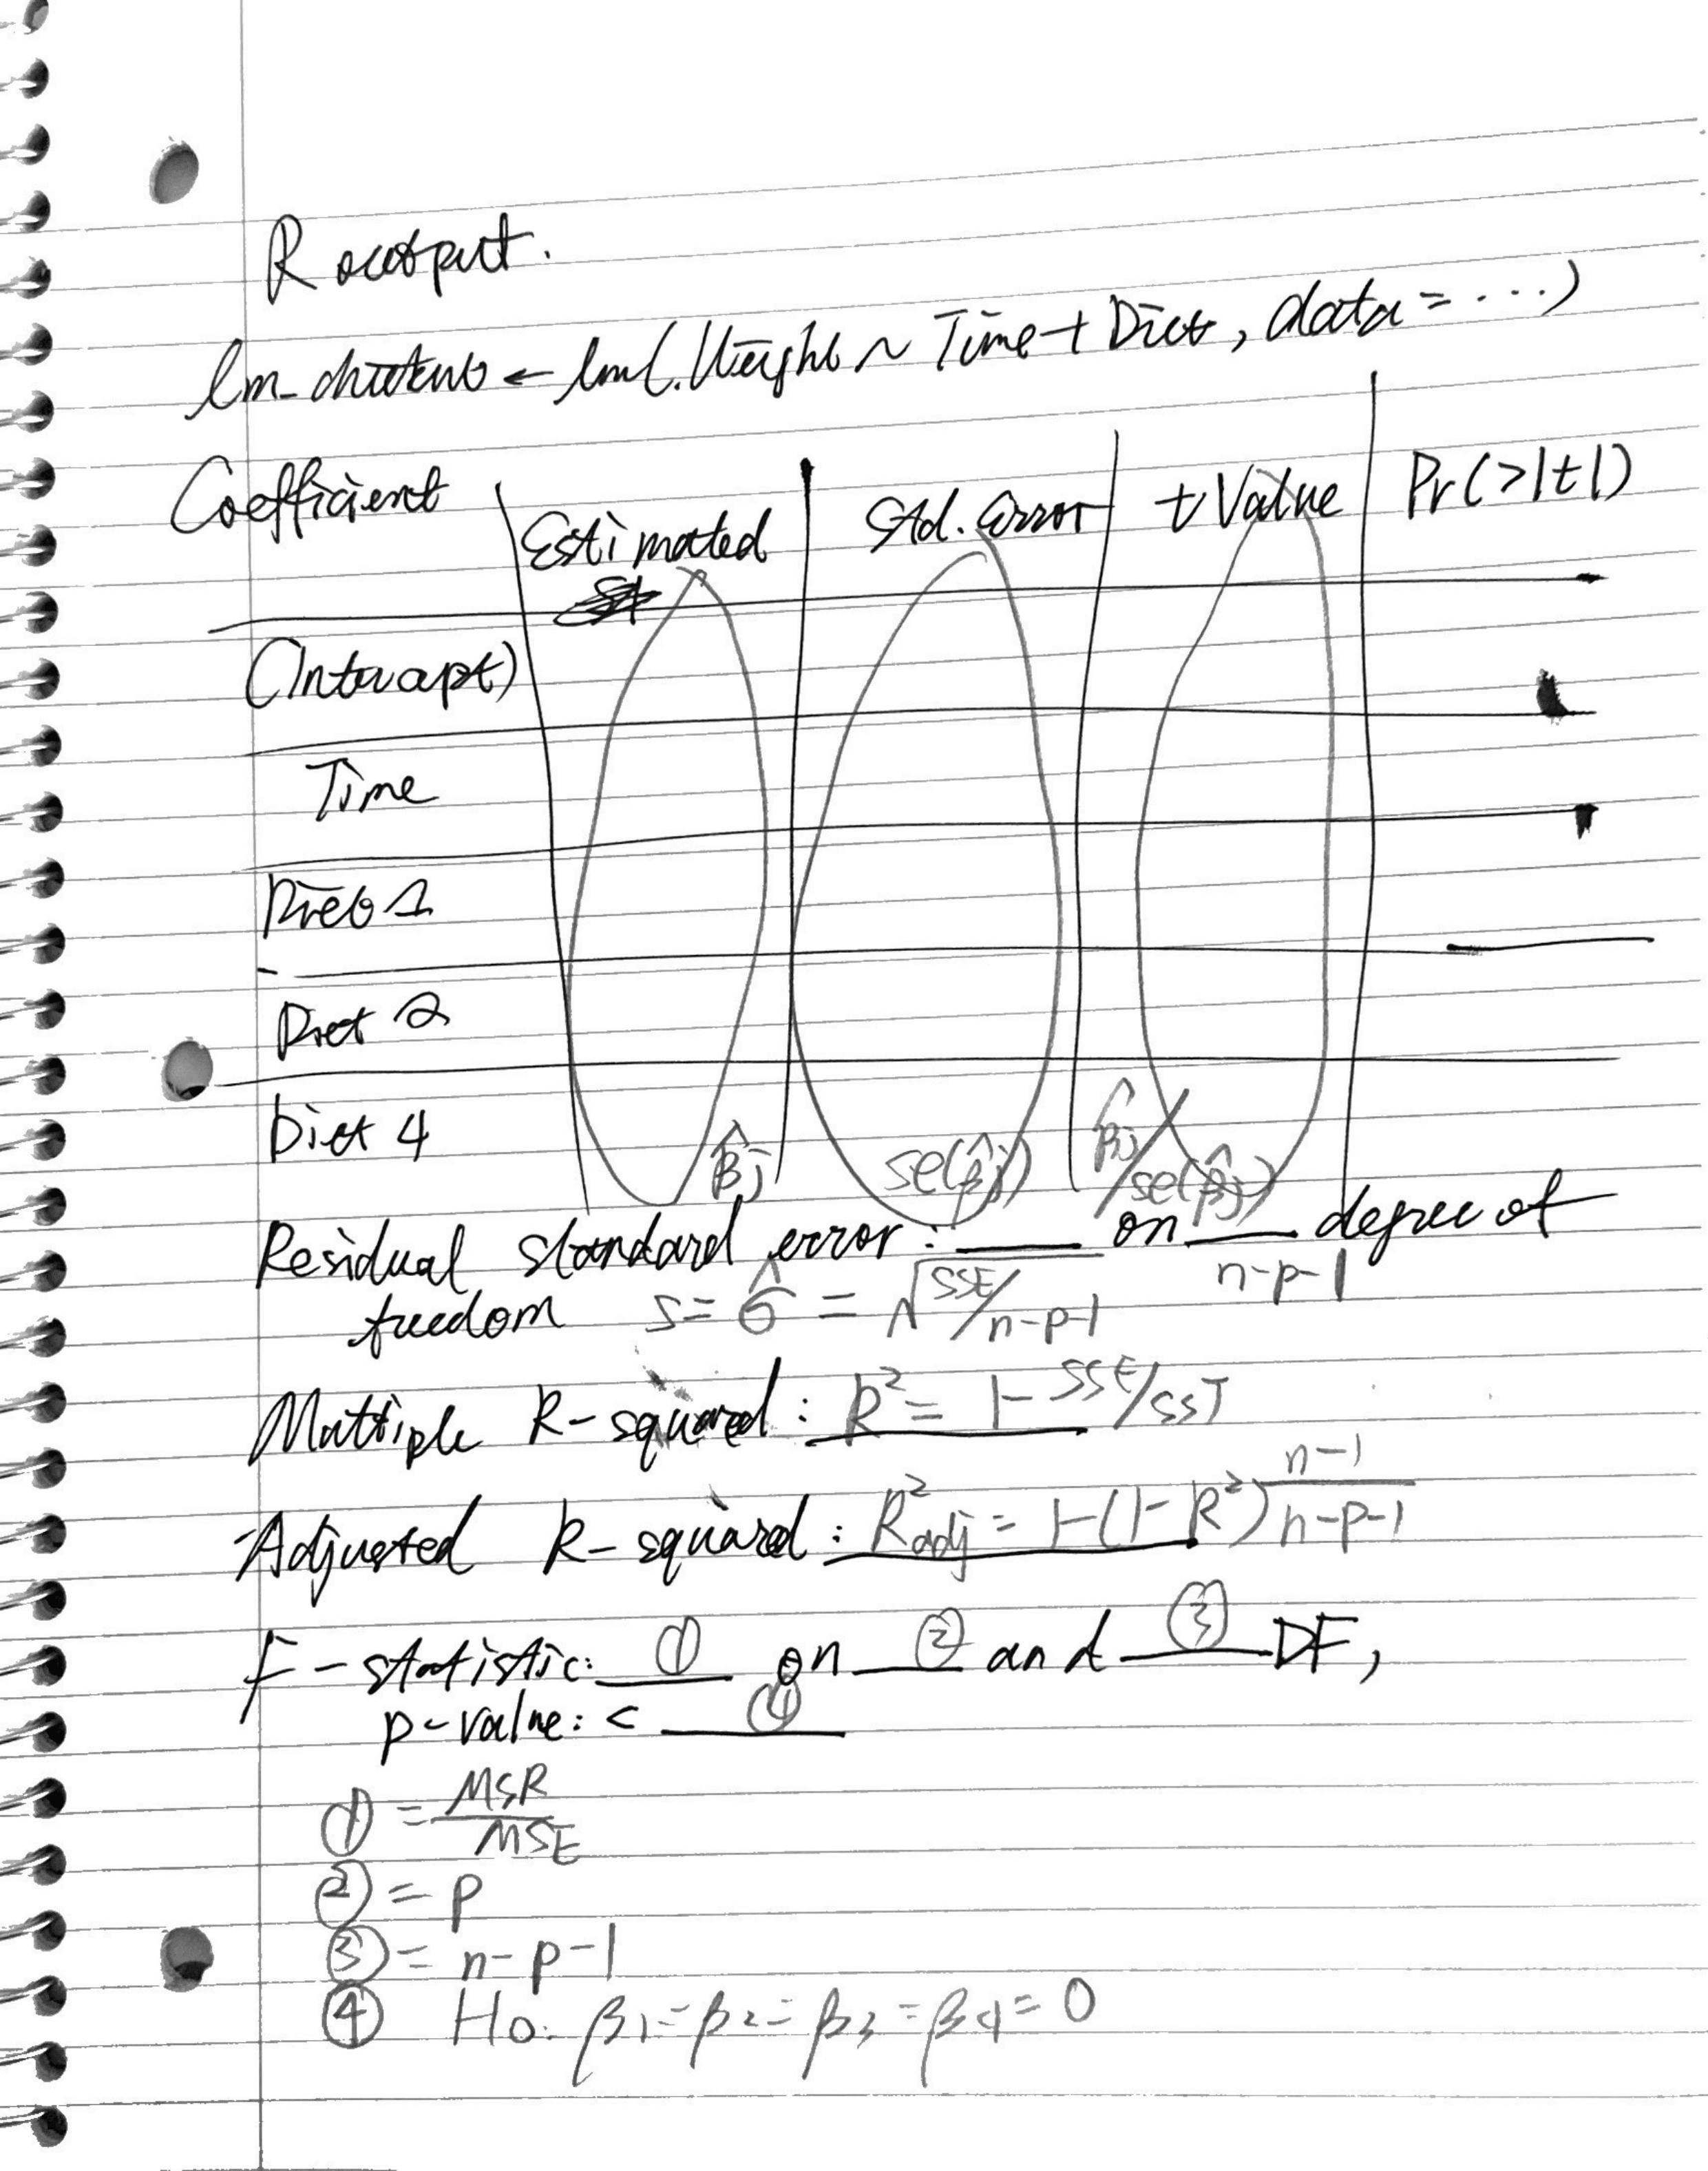 R output.
lm_chickens ← lm(Weight ~ Time + Diet, data = ...)
Coefficient | Estimated | Std. Error | t Value | Pr(>|t|)
(Intercept)
Time
Diet 1
Diet 2
Diet 4
β̂j se(β̂j) β̂j/se(β̂j)
Residual standard error: ___ on ___ degree of
n-p-1
freedom s = σ̂ = √SSE/n-p-1
Multiple R-squared: R² = 1 - SSE/SST
Adjusted R-squared: R²adj = 1-(1-R²) n-1/n-p-1
F-statistic: ① on ② and ③ DF,
p-value: < ④
① = MSR/MSE
② = p
③ = n-p-1
④ H0: β1=β2=β3=β4=0